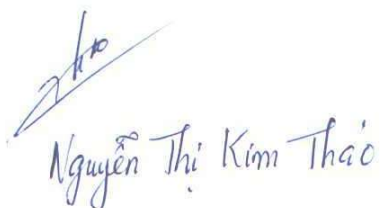 Nguyễn Thị Kim Thảo